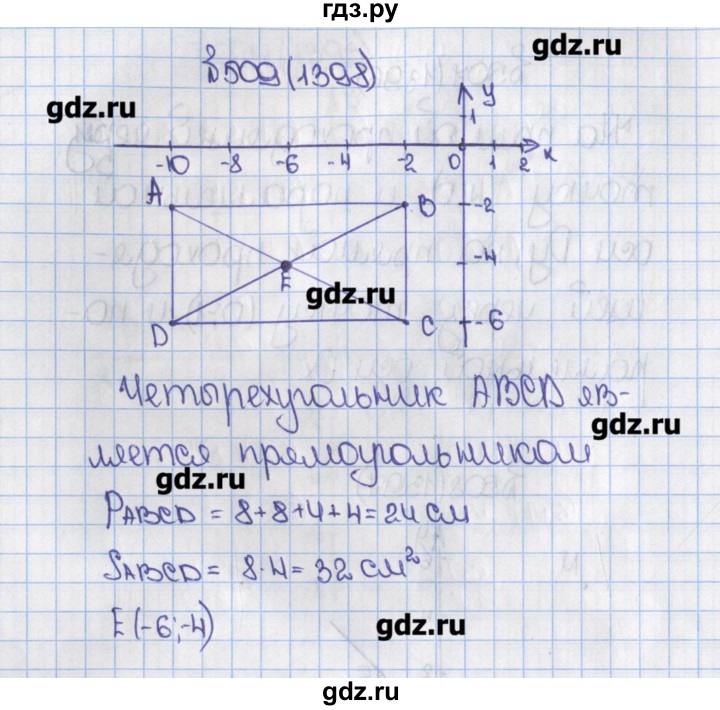 гдз.ру
§509(1398)
gdz.ru
gdz.ru
y
1
-10 -8 -6 -4 -2 0 1 2 x
A B -2
E -4
gdz.ru
D C -6
Четырехугольник ABCD яв-
gdz.ru
ляется прямоугольником
gdz.ru
PABCD = 8+8+4+4=24 см
SABCD = 8·4=32 см²
E(-6;-4)
gdz.ru
gdz.ru